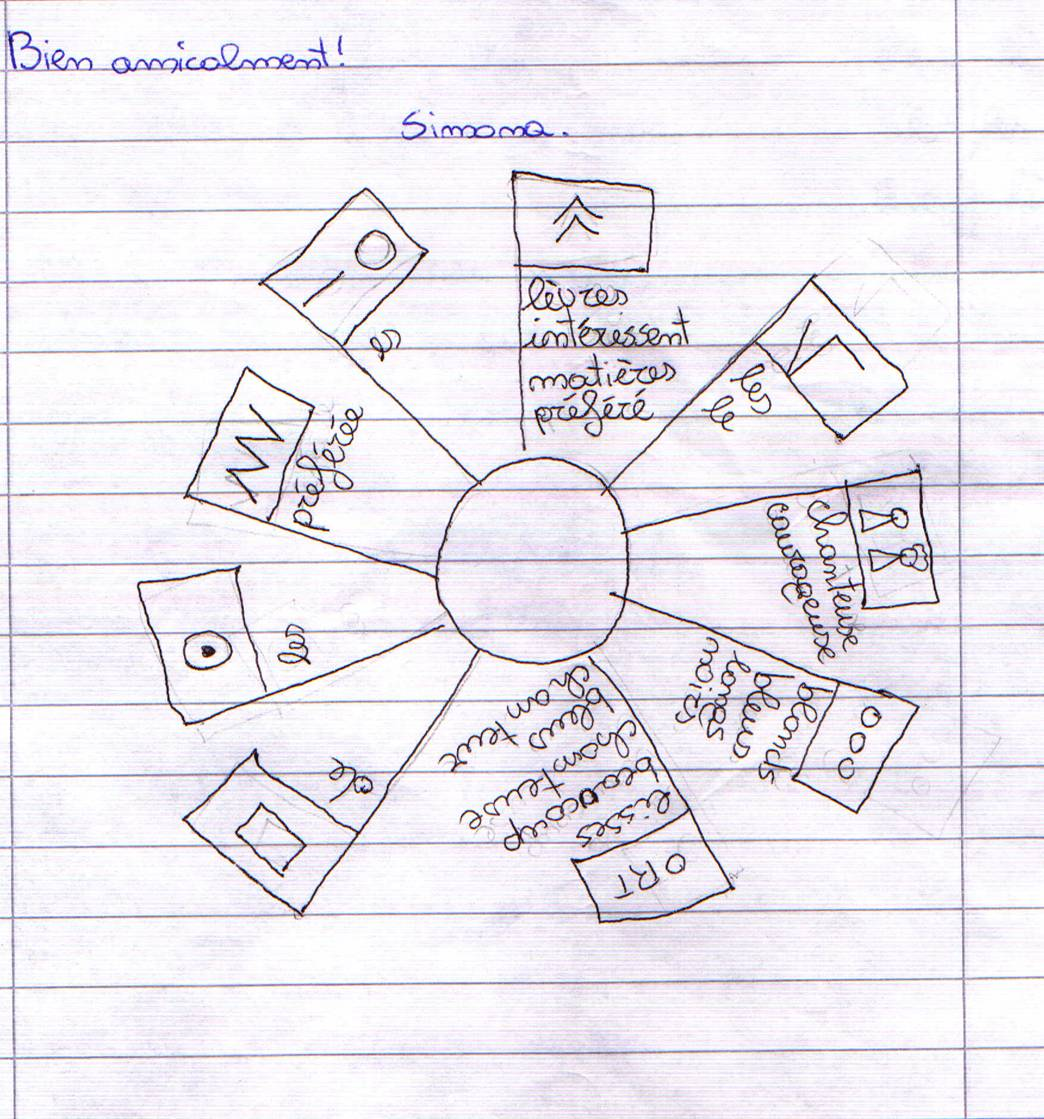 Bien amicalment!
Simona.
lèvres
intéressent
matières
préféré
les
le
chanteuse
courageuse
blonds
bleus
longs
mois
ORT
lisses
beaocoup
chanteuse
bleus
chanteur
de
les
préférée
es